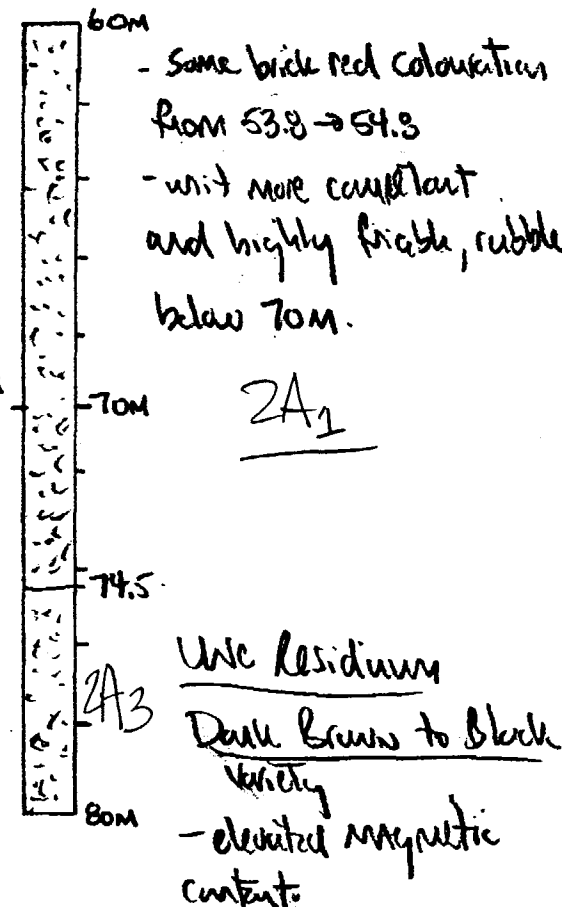 60M
- Some brick red colouration
from 53.8 → 54.8
- unit more competant
and highly friable, rubble
below 70M.
70M
2A1
74.5
UNC Residium
2A3
Dark Brown to Black
Variety
80M
- elevated magnetic
content.